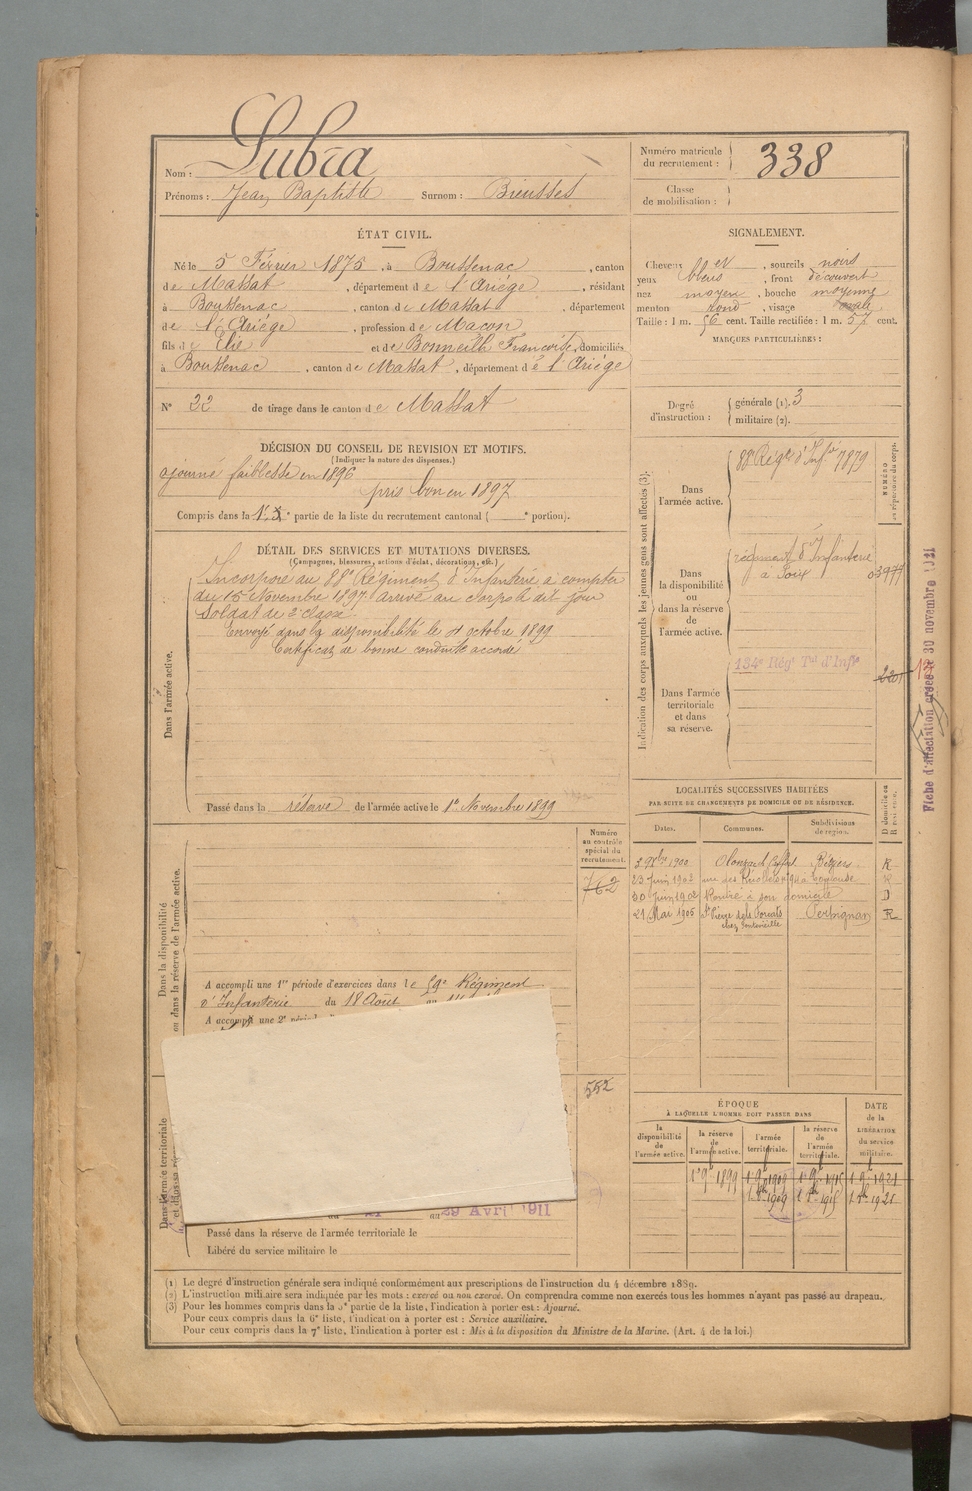 Nom : Lubra
Prénoms : Jean Baptiste Surnom : Bieusses
Numéro matricule du recrutement : 338
Classe de mobilisation :
ÉTAT CIVIL.
Né le 5 Février 1875, à Boussenac, canton
de Massat, département de l'Ariège, résidant
à Boussenac, canton de Massat, département
de l'Ariège, profession de Maçon
fils de Elie et de Bonneilh Françoise, domiciliés
à Boussenac, canton de Massat, département de l'Ariège
N° 22 de tirage dans le canton de Massat
SIGNALEMENT.
Cheveux et, sourcils noirs
yeux bleus, front découvert
nez moyen, bouche moyenne
menton rond, visage ovale
Taille : 1 m. 56 cent. Taille rectifiée : 1 m. 57 cent.
MARQUES PARTICULIÈRES :
Degré d'instruction : générale (1). 3
militaire (2).
DÉCISION DU CONSEIL DE REVISION ET MOTIFS.
(Indiquer la nature des dispenses.)
ajourné faiblesse en 1896
pris bon en 1897
Compris dans la partie de la liste du recrutement cantonal ( e portion).
DÉTAIL DES SERVICES ET MUTATIONS DIVERSES.
(Campagnes, blessures, actions d'éclat, décorations, etc.)
Dans l'armée active.
Incorporé au 88e Régiment d'Infanterie à compter
du 15 Novembre 1897. arrivé au corps le dit jour
Soldat de 2e classe
Envoyé dans la disponibilité le octobre 1899
Certificat de bonne conduite accordé
Passé dans la réserve de l'armée active le 1er Novembre 1899
Indication des corps auxquels les jeunes gens sont affectés (3).
NUMÉRO au répertoire du corps.
Dans l'armée active.
88e Régt d'Infie 7879
Dans la disponibilité ou dans la réserve de l'armée active.
régiment d'Infanterie
à Foix 03977
Dans l'armée territoriale et dans sa réserve.
134e Régt Tal d'Infie
2201
Fiche d'affectation créée le 30 novembre 1921
LOCALITÉS SUCCESSIVES HABITÉES
PAR SUITE DE CHANGEMENTS DE DOMICILE OU DE RÉSIDENCE.
Dates. Communes. Subdivisions de région. D domicile ou R résidence.
3 9bre 1900 Béziers R
23 Juin 1902 rue des à Toulouse R
30 Juin 1902 Rentré à son domicile D
21 Mai 1905 St Pierre dels Forcats Perpignan R
chez Fonteneille
Dans la disponibilité ou dans la réserve de l'armée active.
Numéro au contrôle spécial du recrutement.
762
A accompli une 1re période d'exercices dans le 59e Régiment
d'Infanterie du 18 Août au
A accompli une 2e période
Dans l'armée territoriale et dans sa
552
du au 29 Avril 1911
Passé dans la réserve de l'armée territoriale le
Libéré du service militaire le
ÉPOQUE
À LAQUELLE L'HOMME DOIT PASSER DANS
la disponibilité de l'armée active.
la réserve de l'armée active.
l'armée territoriale.
la réserve de l'armée territoriale.
DATE de la LIBÉRATION du service militaire.
1er 9b 1899 1er 9b 1909 1er 9b 1915 1er 9b 1921
1 8b 1909 1 8b 1915 1 8b 1921
(1) Le degré d'instruction générale sera indiqué conformément aux prescriptions de l'instruction du 4 décembre 1889.
(2) L'instruction militaire sera indiquée par les mots : exercé ou non exercé. On comprendra comme non exercés tous les hommes n'ayant pas passé au drapeau.
(3) Pour les hommes compris dans la 5e partie de la liste, l'indication à porter est : Ajourné.
Pour ceux compris dans la 6e liste, l'indication à porter est : Service auxiliaire.
Pour ceux compris dans la 7e liste, l'indication à porter est : Mis à la disposition du Ministre de la Marine. (Art. 4 de la loi.)